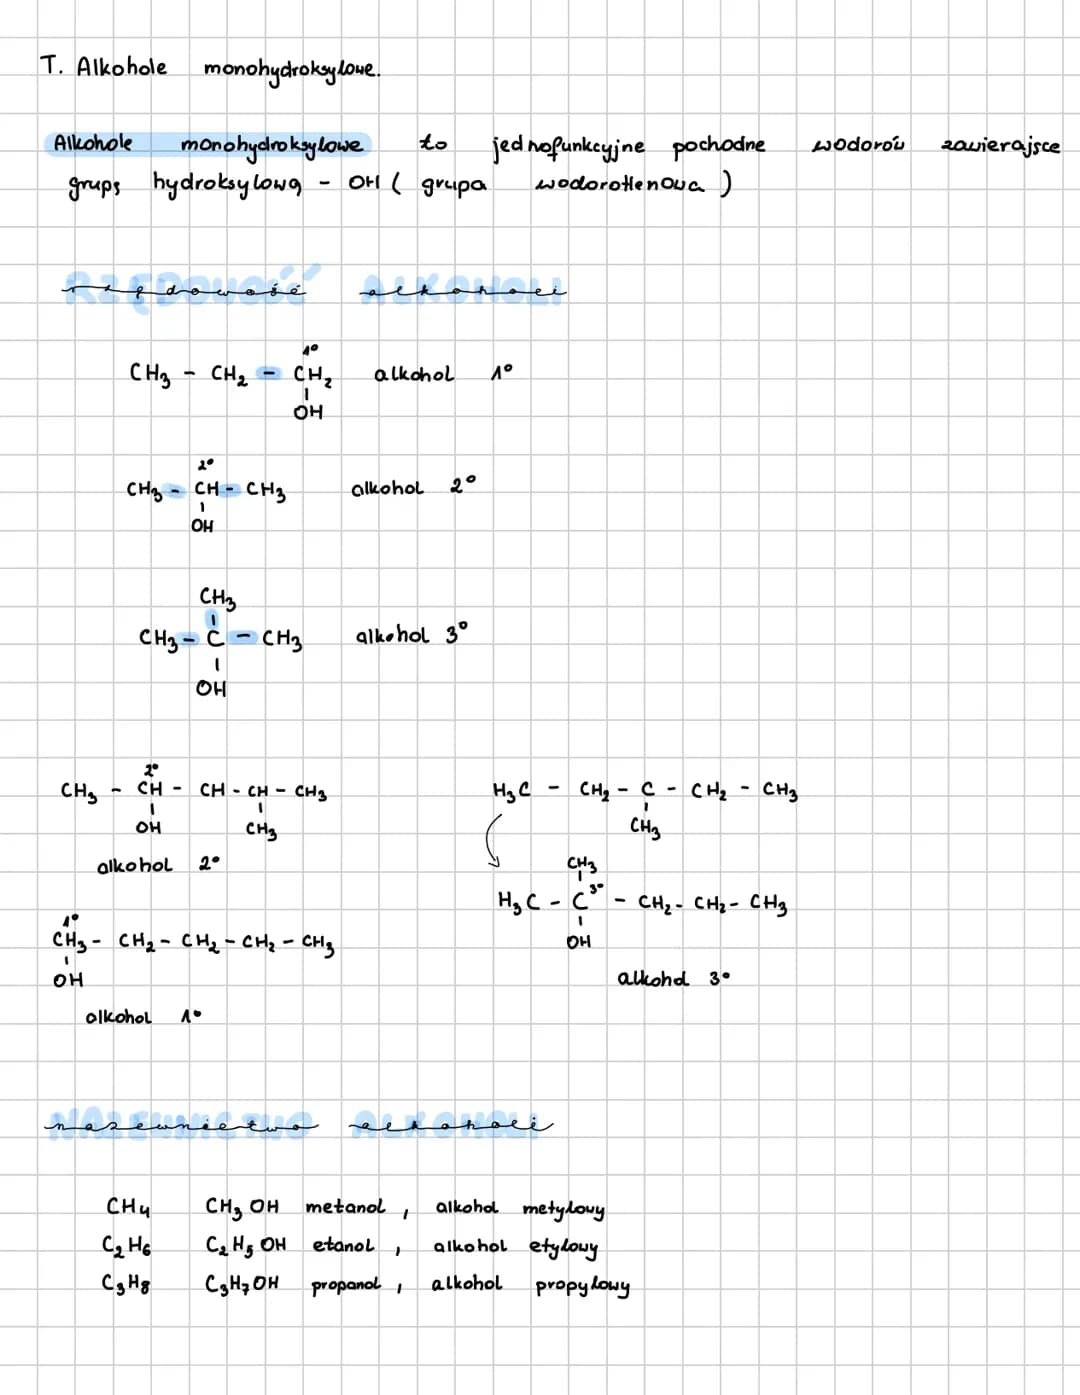 T. Alkohole monohydroksylowe.
Alkohole monohydroksylowe to jednofunkcyjne pochodne wodorów zawierające
grupę hydroksylową - OH ( grupa wodorotlenowa )
RZĘDOWOŚĆ ALKOHOLI
rzędowość alkoholi
1°
CH₃ - CH₂ - CH₂ alkohol 1°
OH
2°
CH₃ - CH - CH₃ alkohol 2°
OH
CH₃
CH₃ - C - CH₃ alkohol 3°
OH
2°
CH₃ - CH - CH - CH - CH₃
OH CH₃
alkohol 2°
1°
CH₃ - CH₂ - CH₂ - CH₂ - CH₃
OH
alkohol 1°
H₃C - CH₂ - C - CH₂ - CH₃
CH₃
CH₃
H₃C - C³° - CH₂ - CH₂ - CH₃
OH
alkohol 3°
NAZEWNICTWO ALKOHOLI
nazewnictwo alkoholi
CH₄ CH₃OH metanol, alkohol metylowy
C₂H₆ C₂H₅OH etanol, alkohol etylowy
C₃H₈ C₃H₇OH propanol, alkohol propylowy